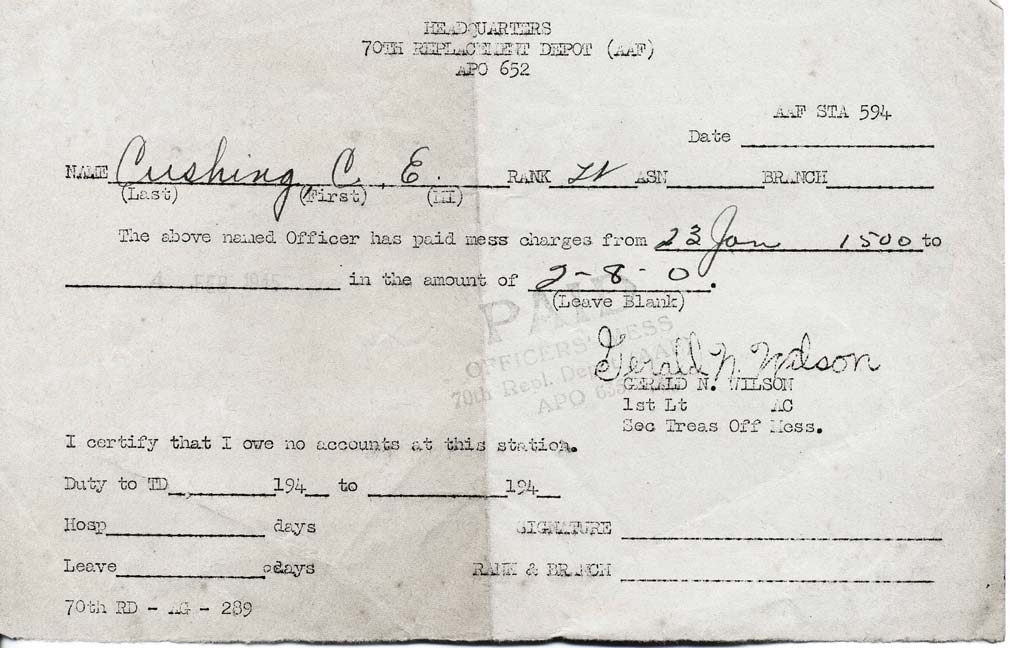 HEADQUARTERS
70TH REPLACEMENT DEPOT (AAF)
APO 652
AAF STA 594
Date
NAME Cushing, C. E. RANK Lt ASN BRANCH
(Last) (First) (MI)
The above named Officer has paid mess charges from 23 Jan 1500 to
4 FEB 1945 in the amount of 2-8-0.
(Leave Blank)
PAID
OFFICERS' MESS
70th Repl. Depot AAF
APO 652
Gerald N. Wilson
GERALD N. WILSON
1st Lt AC
Sec Treas Off Mess.
I certify that I owe no accounts at this station.
Duty to TD 194 to 194
Hosp days SIGNATURE
Leave days RANK & BRANCH
70th RD - AG - 289